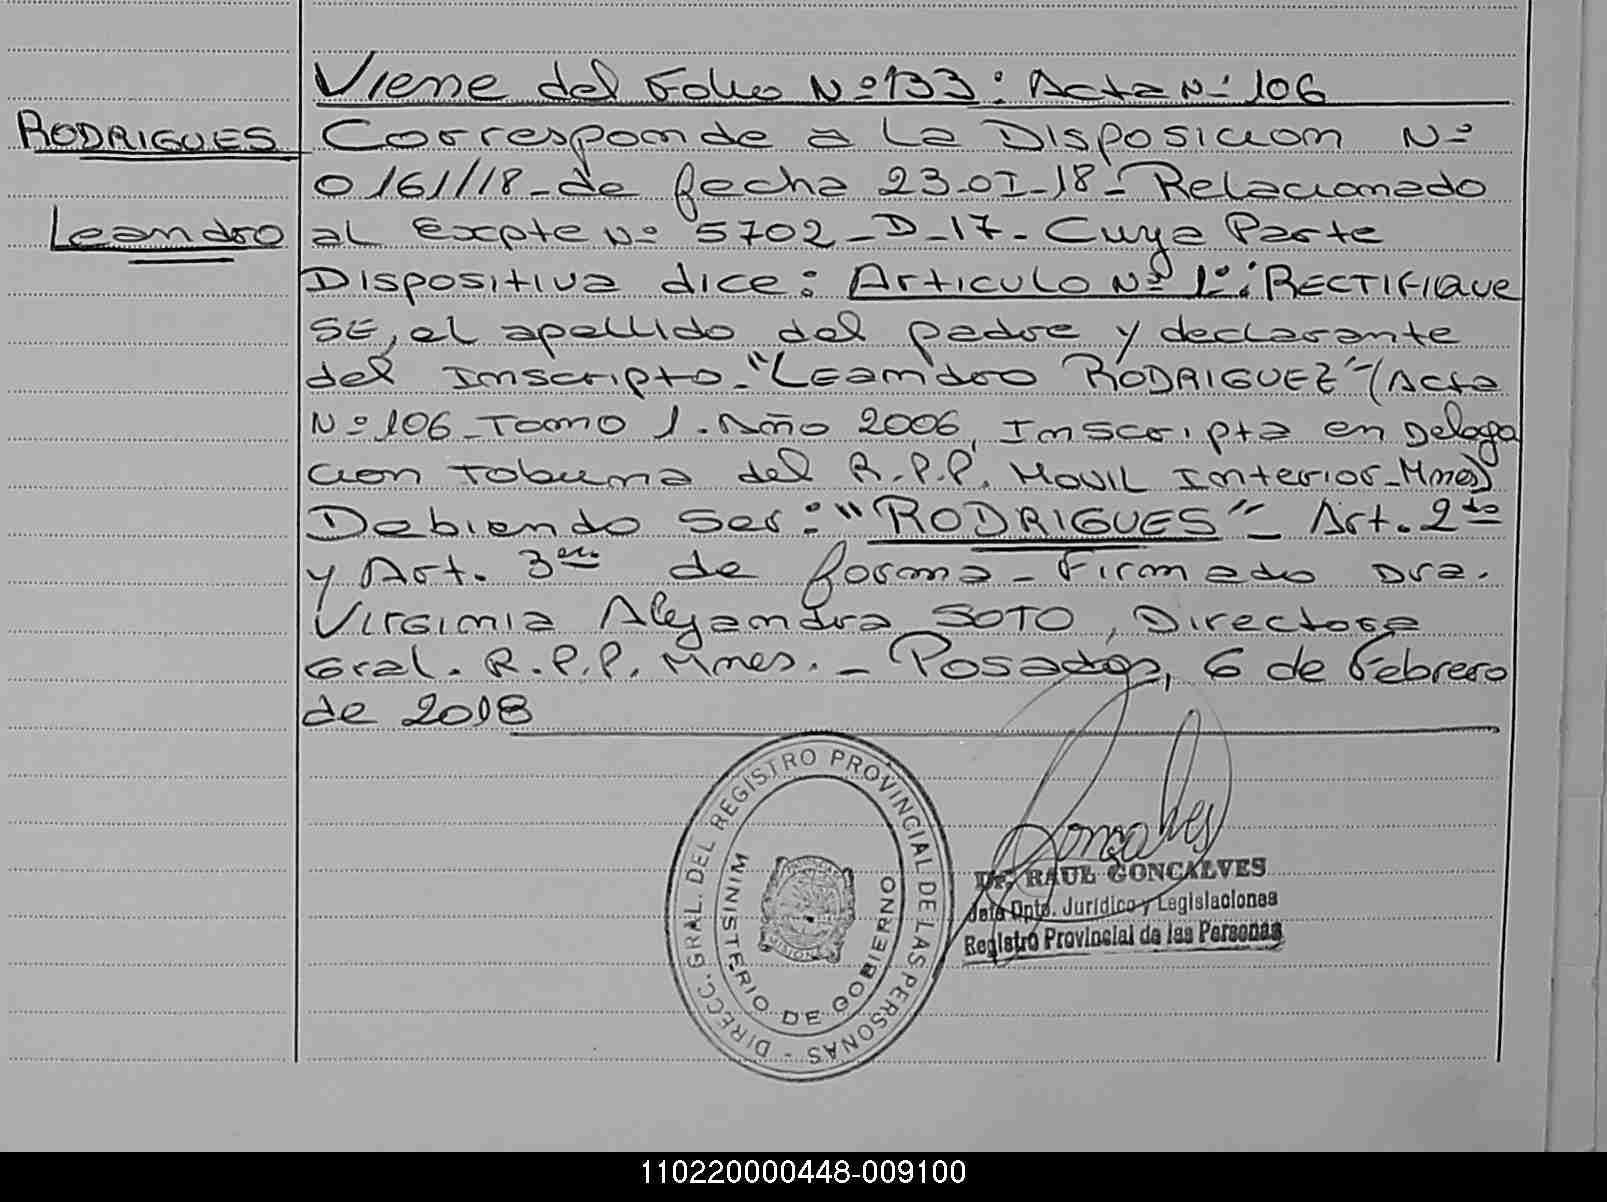 Viene del Folio Nº 133: Acta Nº 106
RODRIGUES
Leandro
Corresponde a La Disposicion Nº
0161/18-de fecha 23-01-18-Relacionado
al Expte Nº 5702-D-17- Cuya Parte
Dispositiva dice: Articulo Nº 1º: RECTIFIQUE
SE, el apellido del padre y declarante
del Inscripto-"Leandro RODRIGUEZ"-(Acta
Nº 106-Tomo 1. Año 2006, Inscripta en Delega
cion Tobuna del R.P.P. MOVIL Interior-Mnes)
Debiendo Ser: "RODRIGUES"- Art. 2do
y Art. 3ero de forma-Firmado Dra.
Virginia Alejandra SOTO, Directora
Gral. R.P.P. Mnes.- Posadas, 6 de Febrero
de 2018
DIRECC. GRAL. DEL REGISTRO PROVINCIAL DE LAS PERSONAS -
MINISTERIO DE GOBIERNO
MISIONES
Gonçalves
Dr. RAUL GONCALVES
Jefe Dpto. Jurídico y Legislaciones
Registro Provincial de las Personas
110220000448-009100